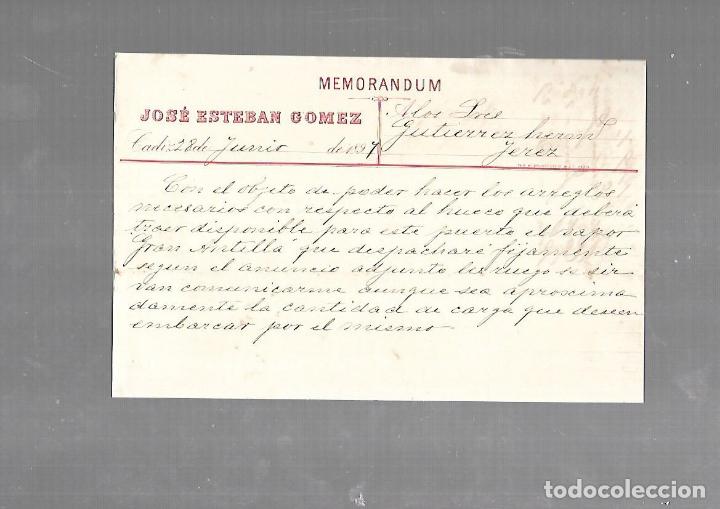 MEMORANDUM
JOSÉ ESTEBAN GOMEZ
Cadiz 28 de Junio de 1897
A los Sres
Gutierrez herms
Jerez
Con el objeto de poder hacer los arreglos
necesarios con respecto al hueco que deberá
traer disponible para este puerto el vapor
Gran Antilla que despacharé fijamente
segun el anuncio adjunto le ruego se sir
van comunicarme aunque sea aproxima
damente la cantidad de carga que deseen
embarcar por el mismo
todocoleccion.net